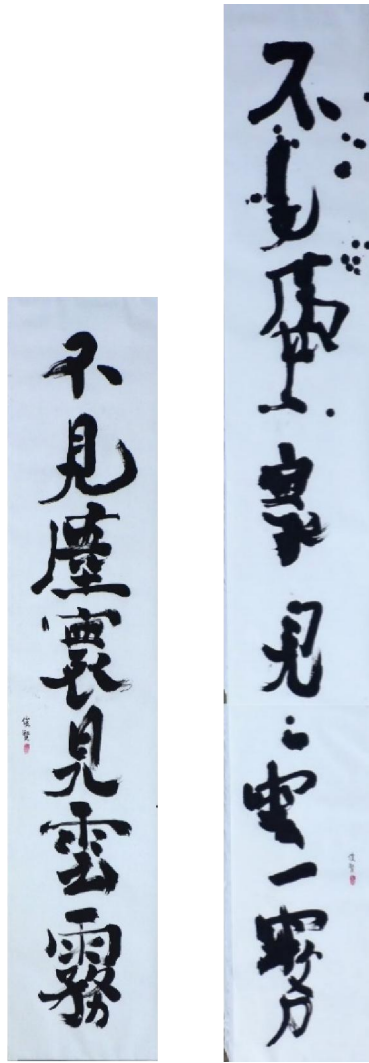 不見塵寰見雲霧
不見塵寰見雲霧